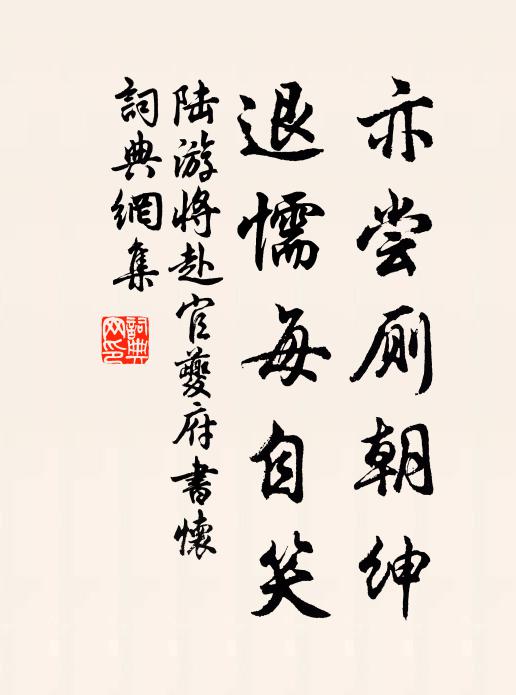 亦尝厠朝绅
退懦每自笑
陆游将赴官夔府書懷
詞典網集
詞典网印